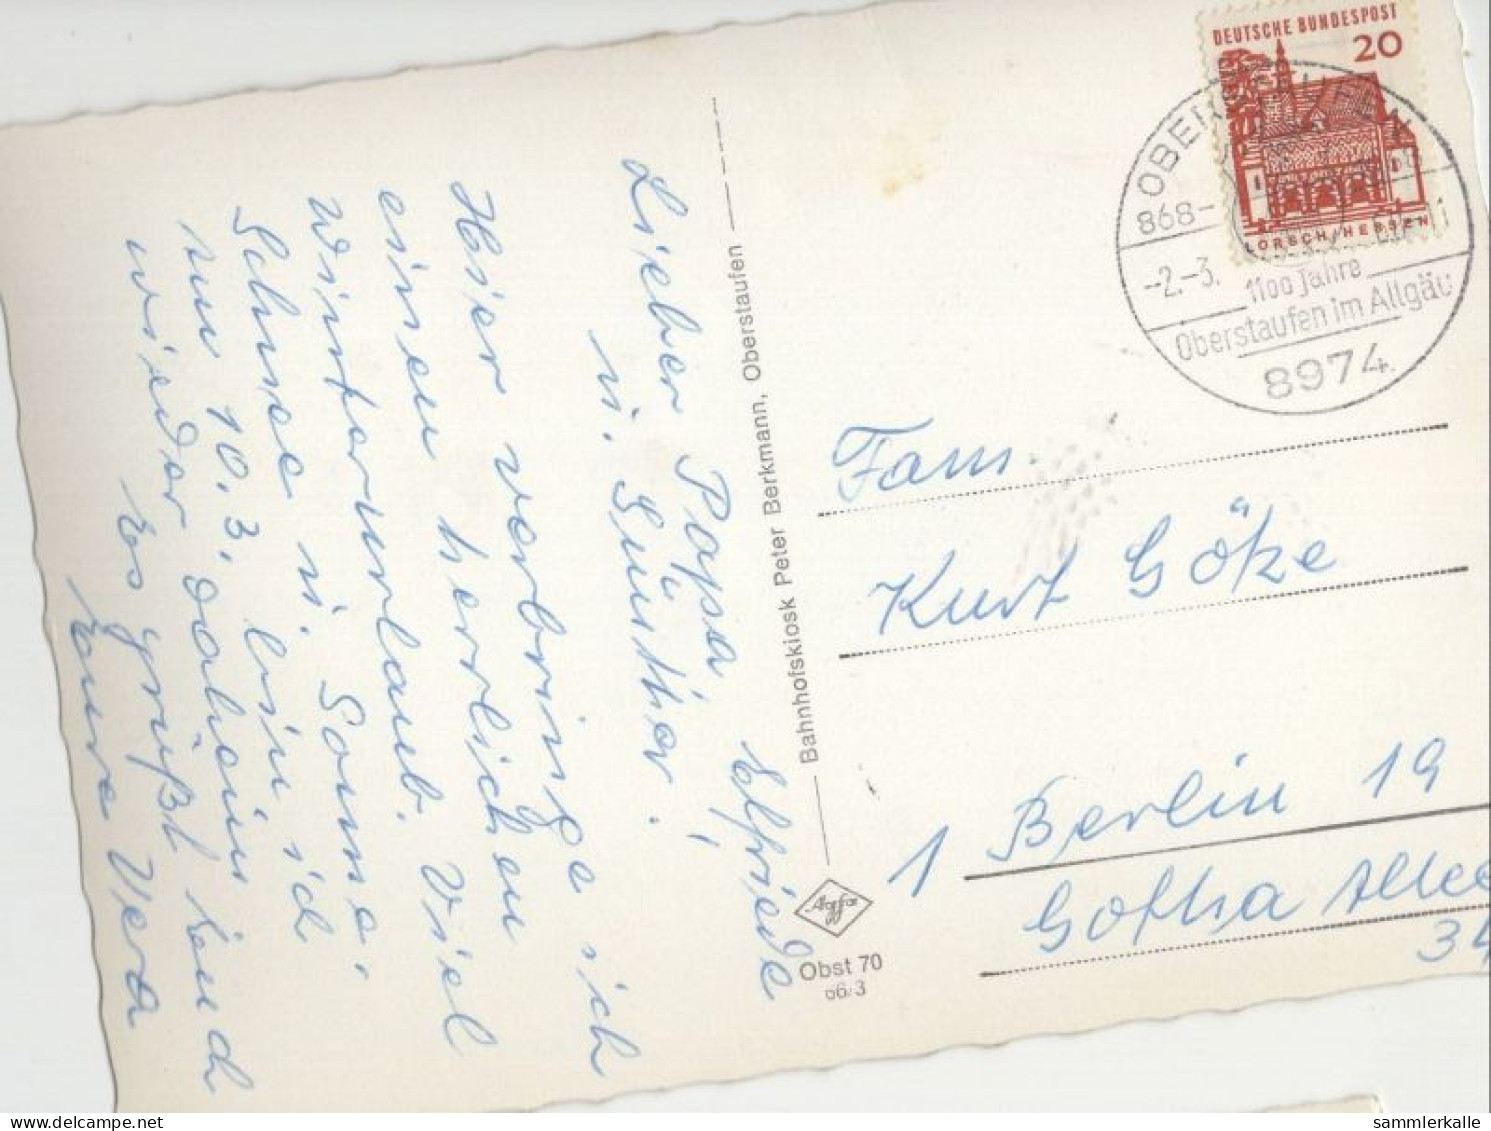 DEUTSCHE BUNDESPOST
20
LORSCH/HESSEN
OBERSTAUFEN
868-
-2.-3.
-11
1100 Jahre
Oberstaufen im Allgäu
8974
Lieber Papa, Elfriede
u. Günther!
Hier verbringe ich
einen herrlichen
Winterurlaub. Viel
Schnee u. Sonne,
am 10.3. bin ich
wieder daheim
Es grüßt Euch
Eure Vera
Bahnhofskiosk Peter Berkmann, Oberstaufen
Agfa
Obst 70
06/3
Fam.
Kurt Göke
1 Berlin 19
Gotha Allee
34
sammlerkalle